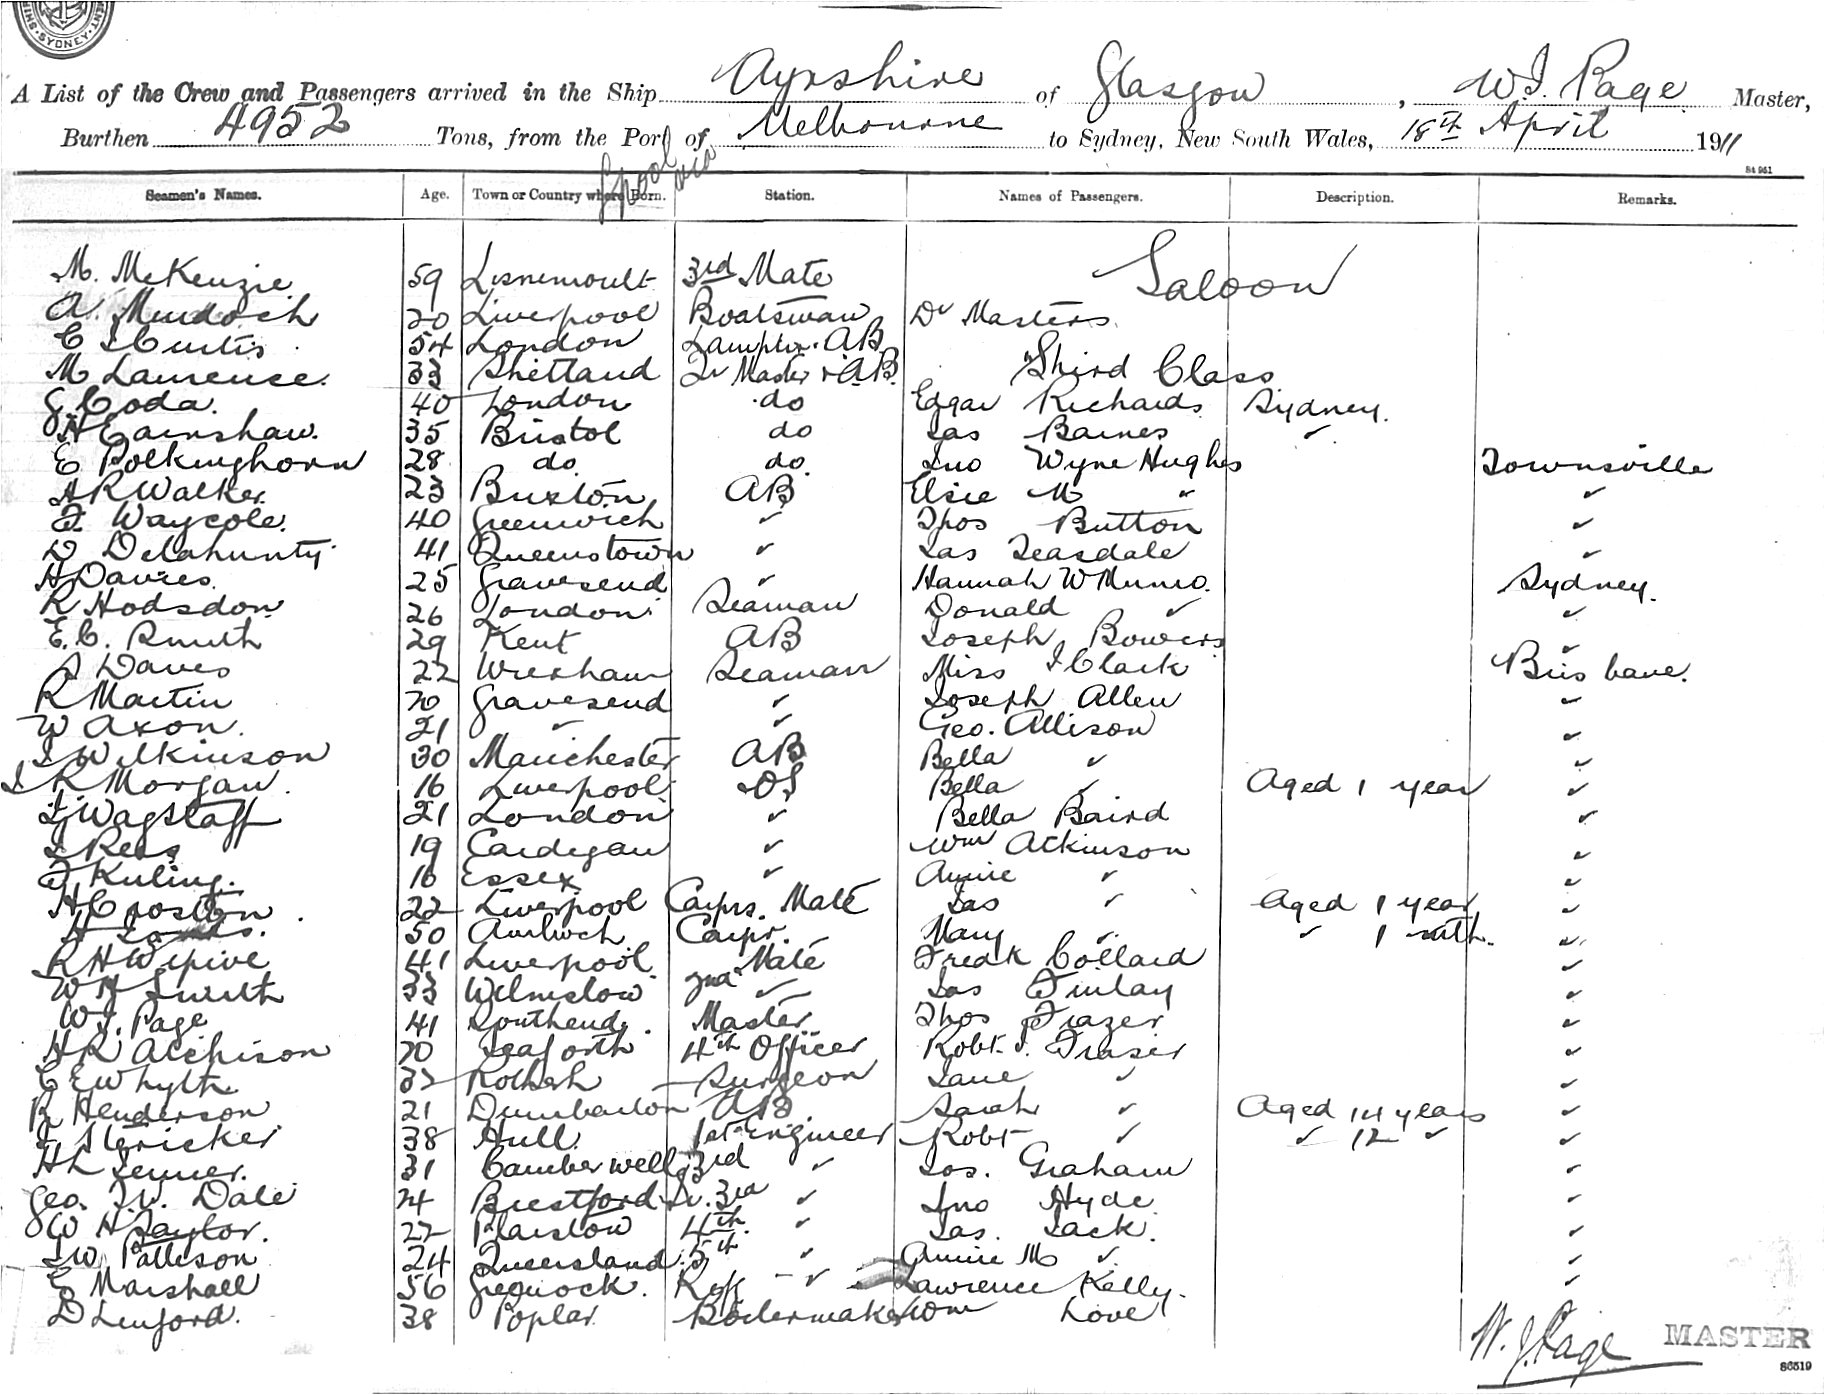 SYDNEY
A List of the Crew and Passengers arrived in the Ship Ayrshire of Glasgow, W.J. Page Master,
Burthen 4952 Tons, from the Port of Melbourne to Sydney, New South Wales, 18th April 1911
L'pool via
84 951
Seamen's Names. Age. Town or Country where Born. Station. Names of Passengers. Description. Remarks.
Saloon
M. McKenzie 59 3rd Mate
A. Murdoch Liverpool Boatswain Dr Masters
C Curtis 54 London AB
M Laurense. 33 Shetland Qr Master & AB. Third Class
G. Coda. 40 London do Edgar Richards Sydney.
H Earnshaw. 35 Bristol do Jas Baines "
E Polkinghorn 28 do do. Jno Wyne Hughes Townsville
A R Walker. 23 Buxton AB Elsie M " "
F. Waycole. 40 Greenwich " Thos Button "
D Delahunty 41 Queenstown " Jas Teasdale "
H Davies. 25 Gravesend " Hannah W Munro. Sydney.
R Hodsdon 26 London Seaman Donald " "
E.C. Smith 29 Kent AB Joseph Bowers "
Davies 22 Wrexham Seaman Miss J Clark Brisbane.
R Martin 20 Gravesend " Joseph Allen "
W Axon. 21 " " Geo. Allison "
J Wilkinson 30 Manchester AB Bella " "
J R Morgan. 16 Liverpool OS Bella " Aged 1 year "
Wagstaff 21 London " Bella Baird "
J Rees 19 Cardigan " Wm Atkinson "
16 Essex " Annie " "
H Croston. 22 Liverpool Carprs. Mate Jas " Aged 1 year "
H 50 Amlwch Carpr. Mary " " 1 mth. "
R H 41 Liverpool. Mate Fredk Collard "
W H Smith 33 Wilmslow 2nd " Jas Finlay "
W J. Page 41 Southend. Master Thos Frazer "
H R Aitchison 20 Seaforth 4th Officer Robt. J. Fraser "
C E Whyth Surgeon Jane " "
R Henderson 21 Dumbarton AB. Sarah " Aged 14 years "
Stericker 38 Hull. 1st Engineer Robt " " 12 " "
H L 31 Camberwell 3rd " Jos. Graham "
Geo. J.W. Dale 24 Jr. 3rd " Jno Hyde "
W H Taylor. 22 Plaistow 4th " Jas. Jack. "
J W Patteson 24 Queensland 5th " Annie M " "
E Marshall 56 Greenock. Rfg - " Lawrence Kelly. "
D Linford. 38 Poplar Boilermaker Wm Love
W. J. Page MASTER
86519